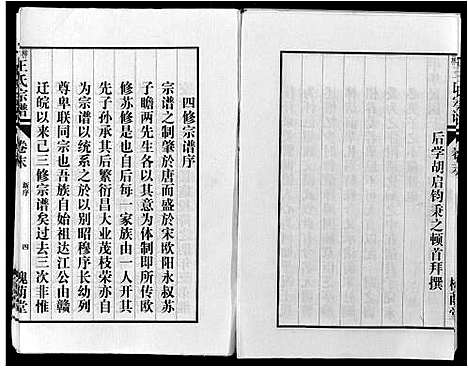 后学胡启钧秉之顿首拜撰
四修宗谱序
宗谱之制肇於唐而盛於宋欧阳永叔苏
子瞻两先生各以其意为体制即所传欧
修苏修是也自后每一家族由一人开其
先子孙承其后繁衍昌大业茂枝荣亦自
为宗谱以统系之於以别昭穆序长幼列
尊卑联同宗也吾族自始祖达江公由赣
迁皖以来己三修宗谱矣过去三次非惟
王氏宗谱
卷末
新序
四
槐荫堂